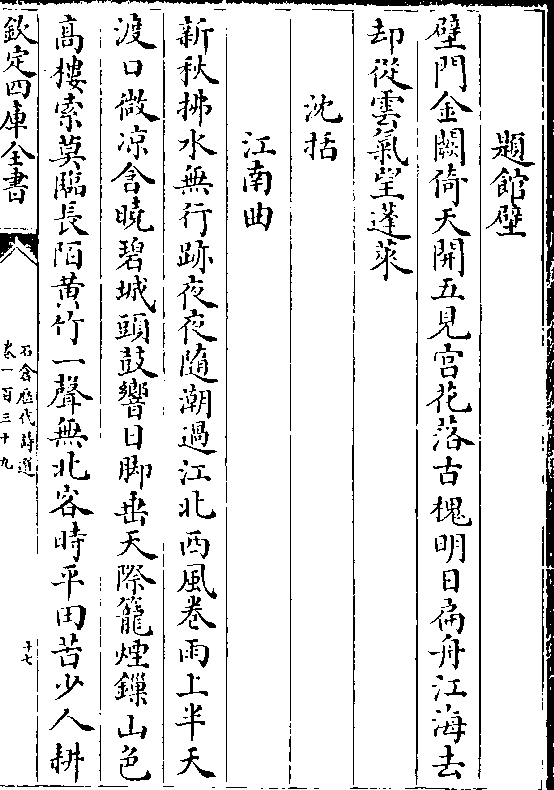 題館壁
壁門金闕倚天開五見宫花落古槐明日扁舟江海去
却從雲氣望蓬萊
沈括
江南曲
新秋拂水無行跡夜夜隨潮過江北西風卷雨上半天
渡口微凉含曉碧城頭鼓響日脚垂天際籠煙鏁山色
高樓索莫臨長陌黄竹一聲無北客時平田苦少人耕
欽定四庫全書
石倉歴代詩選
卷一百三十九
十七